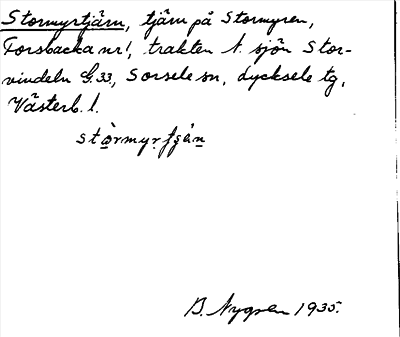 Stormyrtjärn, tjärn på Stormyren,
Forsbacka nr 1, trakten N. sjön Stor-
vindeln G. 33, Sorsele sn, Lycksele tg,
Västerb. l.
B. Nygren 1935.